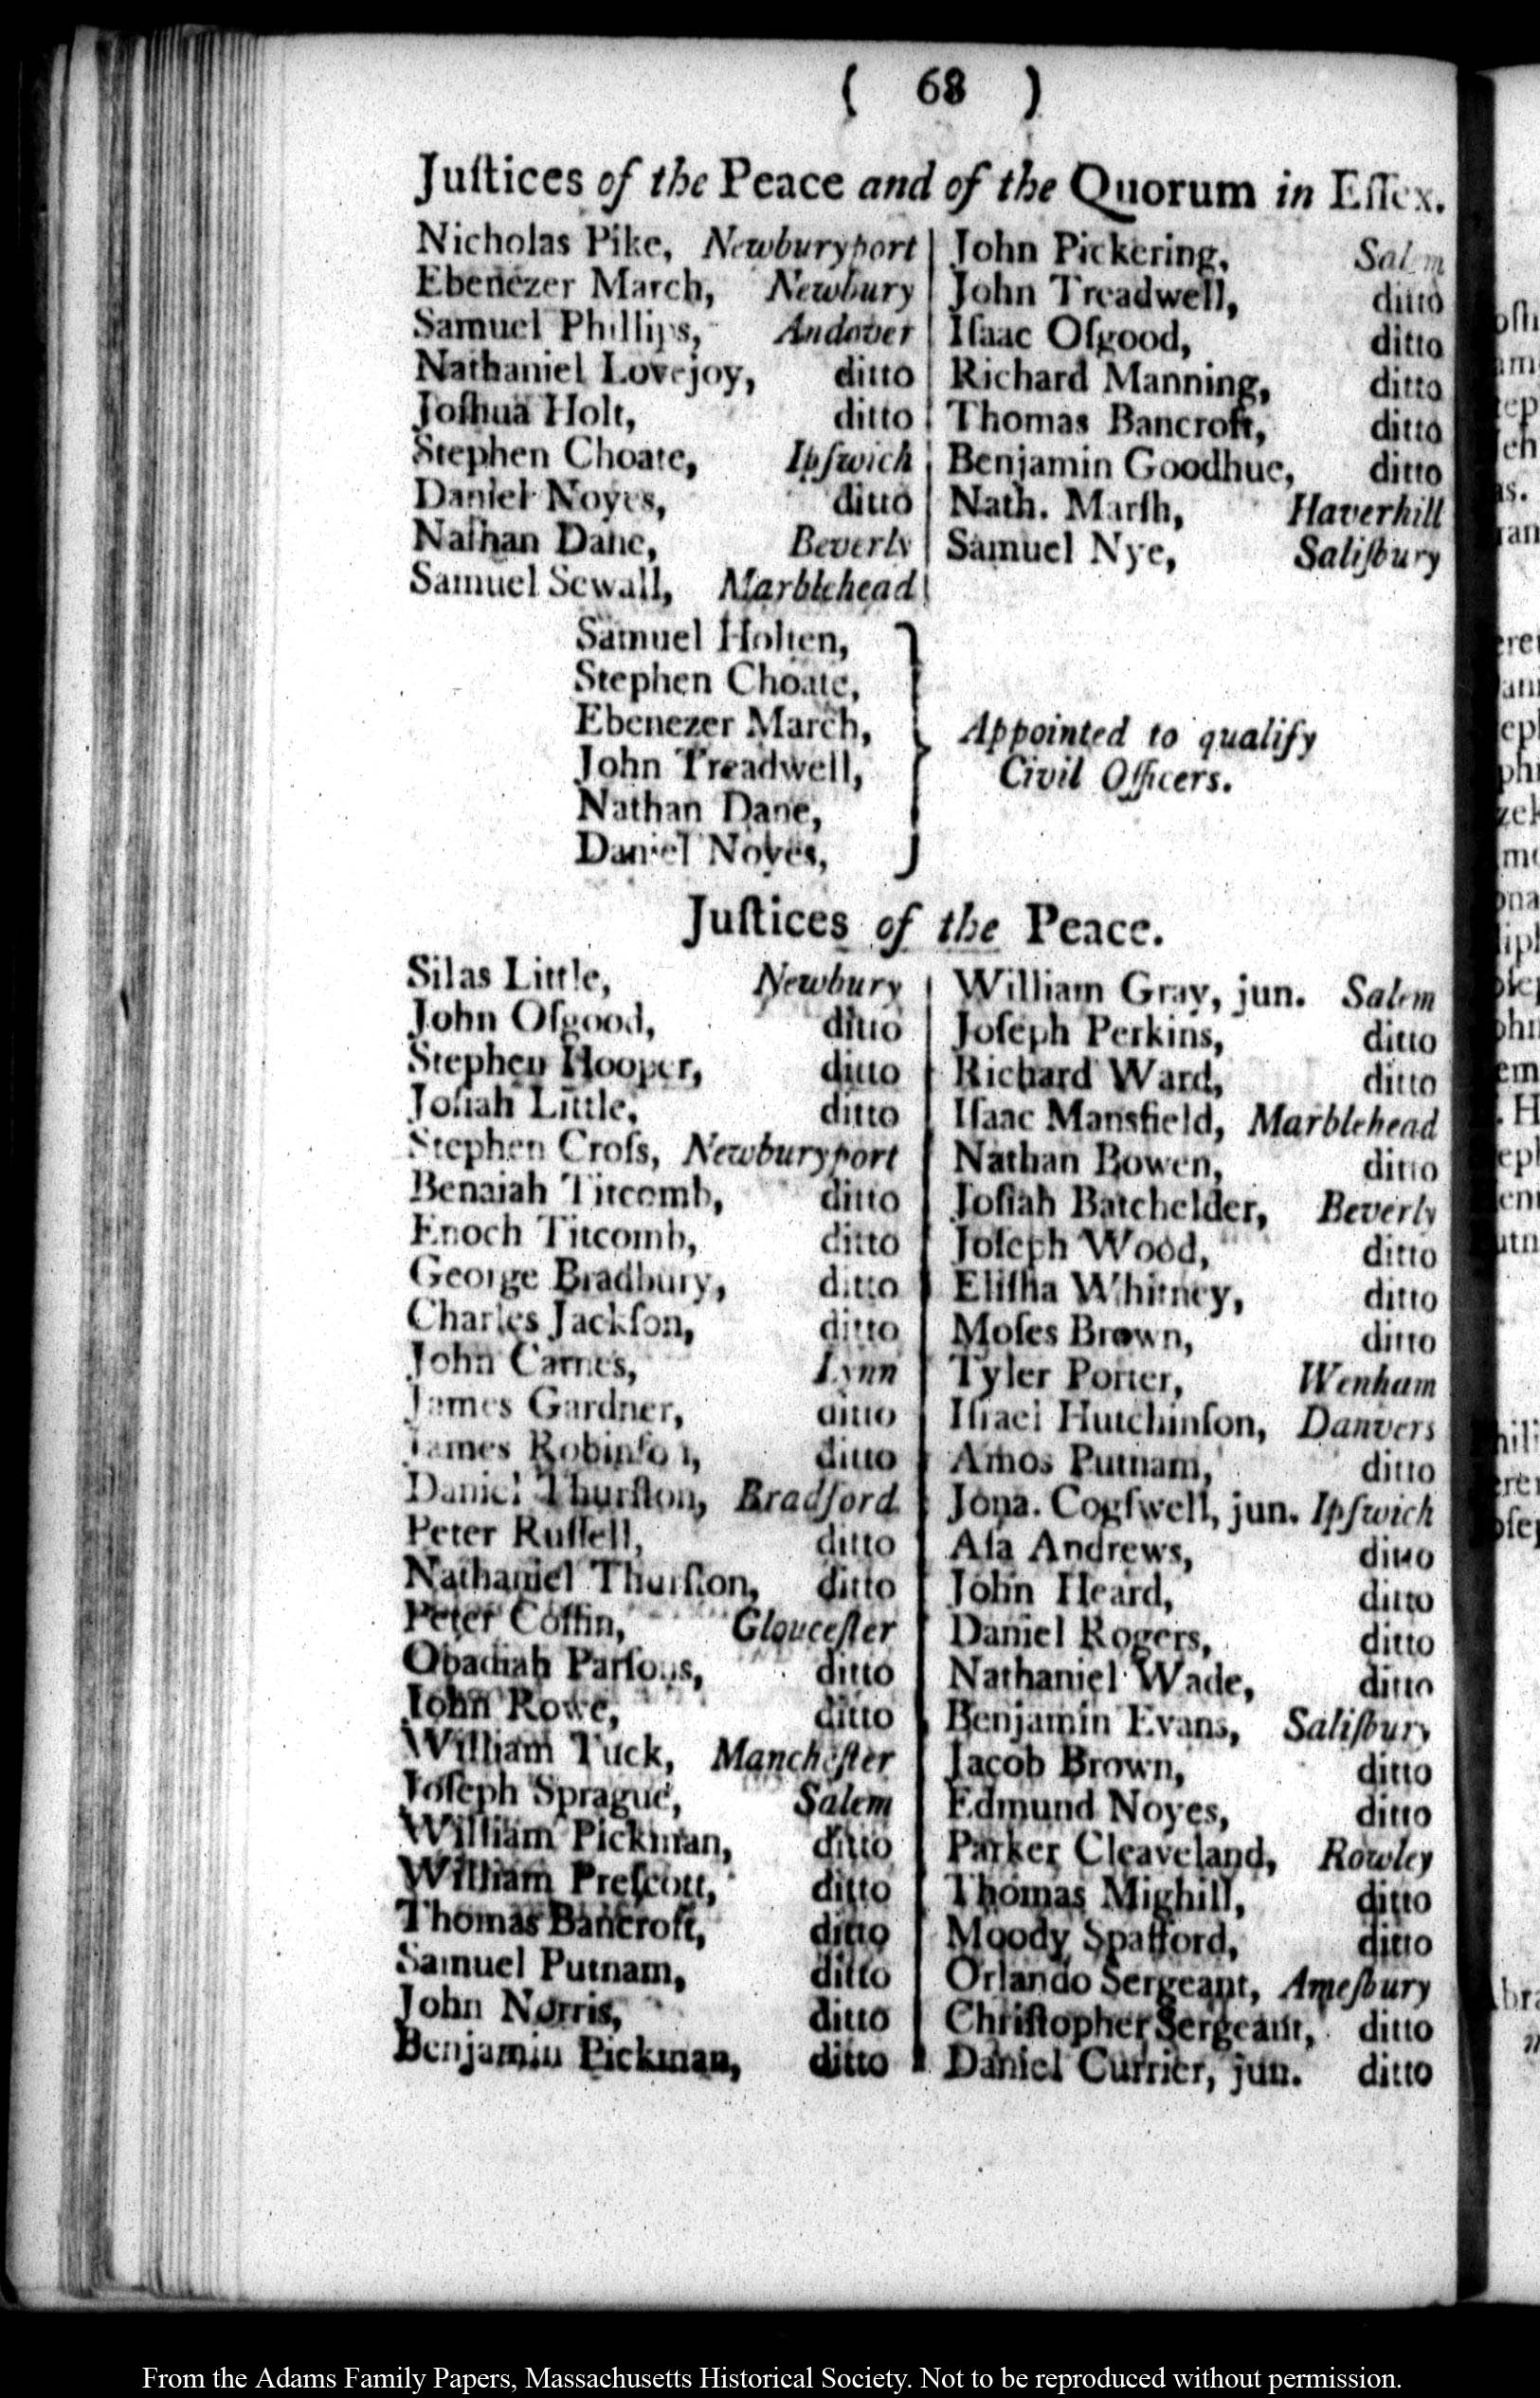 ( 68 )
Juſtices of the Peace and of the Quorum in Eſſex.
Nicholas Pike, Newburyport
Ebenezer March, Newbury
Samuel Phillips, Andover
Nathaniel Lovejoy, ditto
Joſhua Holt, ditto
Stephen Choate, Ipſwich
Daniel Noyes, ditto
Nathan Dane, Beverly
Samuel Sewall, Marblehead
John Pickering, Salem
John Treadwell, ditto
Iſaac Oſgood, ditto
Richard Manning, ditto
Thomas Bancroft, ditto
Benjamin Goodhue, ditto
Nath. Marſh, Haverhill
Samuel Nye, Saliſbury
Samuel Holten,
Stephen Choate,
Ebenezer March,
John Treadwell,
Nathan Dane,
Daniel Noyes,
Appointed to qualify
Civil Officers.
Juſtices of the Peace.
Silas Little, Newbury
John Oſgood, ditto
Stephen Hooper, ditto
Joſiah Little, ditto
Stephen Croſs, Newburyport
Benaiah Titcomb, ditto
Enoch Titcomb, ditto
George Bradbury, ditto
Charles Jackſon, ditto
John Carnes, Lynn
James Gardner, ditto
James Robinſon, ditto
Daniel Thurſton, Bradford
Peter Ruſſell, ditto
Nathaniel Thurſton, ditto
Peter Coffin, Glouceſter
Obadiah Parſons, ditto
John Rowe, ditto
William Tuck, Mancheſter
Joſeph Sprague, Salem
William Pickman, ditto
William Preſcott, ditto
Thomas Bancroft, ditto
Samuel Putnam, ditto
John Norris, ditto
Benjamin Pickman, ditto
William Gray, jun. Salem
Joſeph Perkins, ditto
Richard Ward, ditto
Iſaac Mansfield, Marblehead
Nathan Bowen, ditto
Joſiah Batchelder, Beverly
Joſeph Wood, ditto
Eliſha Whitney, ditto
Moſes Brown, ditto
Tyler Porter, Wenham
Iſrael Hutchinſon, Danvers
Amos Putnam, ditto
Jona. Cogſwell, jun. Ipſwich
Aſa Andrews, ditto
John Heard, ditto
Daniel Rogers, ditto
Nathaniel Wade, ditto
Benjamin Evans, Saliſbury
Jacob Brown, ditto
Edmund Noyes, ditto
Parker Cleaveland, Rowley
Thomas Mighill, ditto
Moody Spafford, ditto
Orlando Sergeant, Ameſbury
Chriſtopher Sergeant, ditto
Daniel Currier, jun. ditto
From the Adams Family Papers, Massachusetts Historical Society. Not to be reproduced without permission.